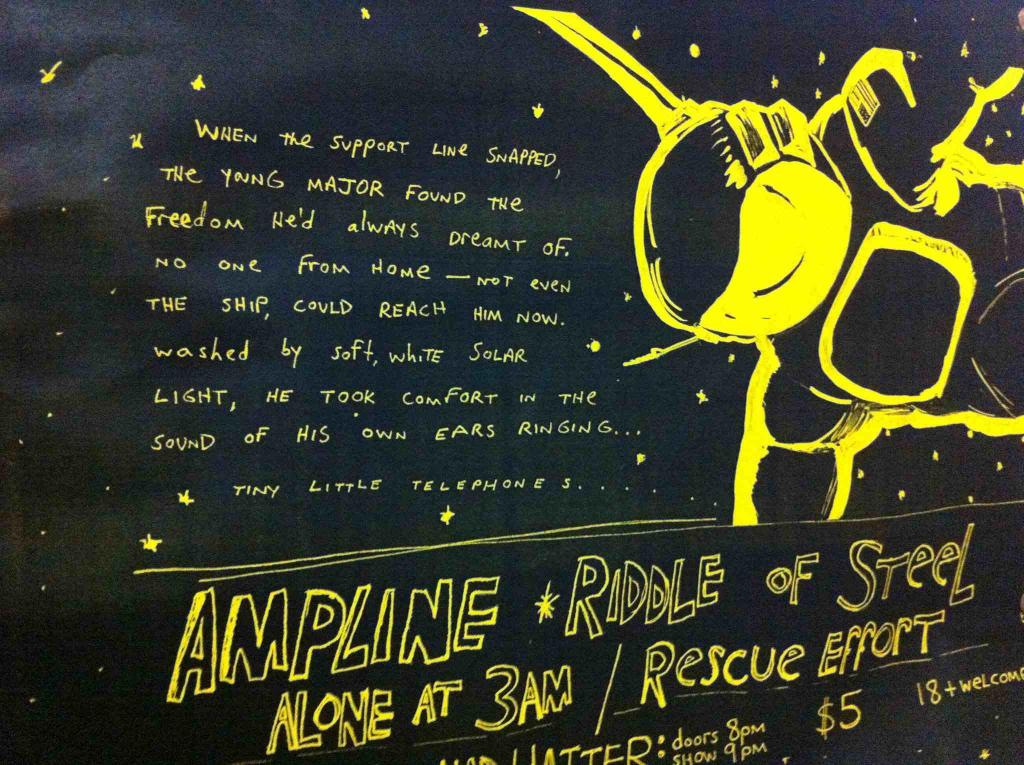 WHEN the SUPPORT LINE SNAPPED,
THE YOUNG MAJOR FOUND THE
FREEDOM HE'd alWAYS DREAMT OF.
NO ONE FROM HOME — NOT even
THE SHIP, COULD REACH HIM NOW.
washed by soft, WHITE SOLAR
LIGHT, HE TOOK COMFORT IN THE
SOUND OF HIS OWN EARS RINGING...
TINY LITTLE TELEPHONES....
AMPLINE * RIDDLE OF STEEL
ALONE AT 3AM / RESCUE EFFORT
HATTER: doors 8pm $5 18+ WELCOME
SHOW 9PM